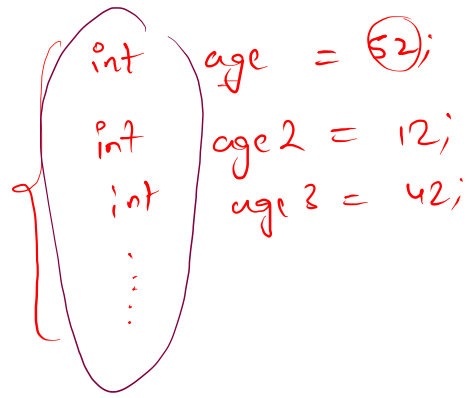 int age = 52;
int age2 = 12;
int age3 = 42;